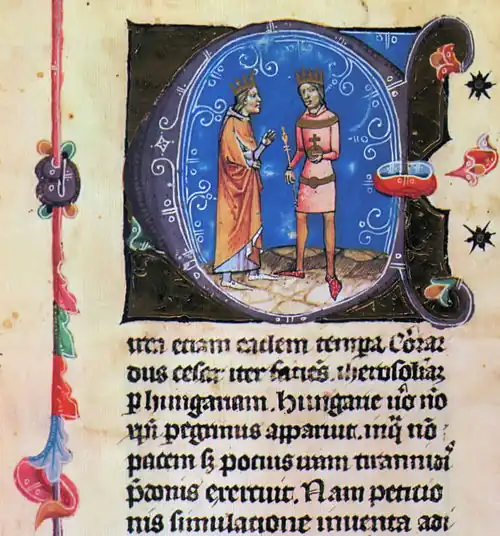 Circa eciam eadem tempa. Cōra
dus cesar iter faciēs. iherosolimā
p hungariam. Hungarie uō nō
xpi pegrinus apparuit. inq̄ nō
pacem sꝫ pocius iram tirannidi
p̄donis exercuit. Nam peticio
nis simulacione inuenta adi